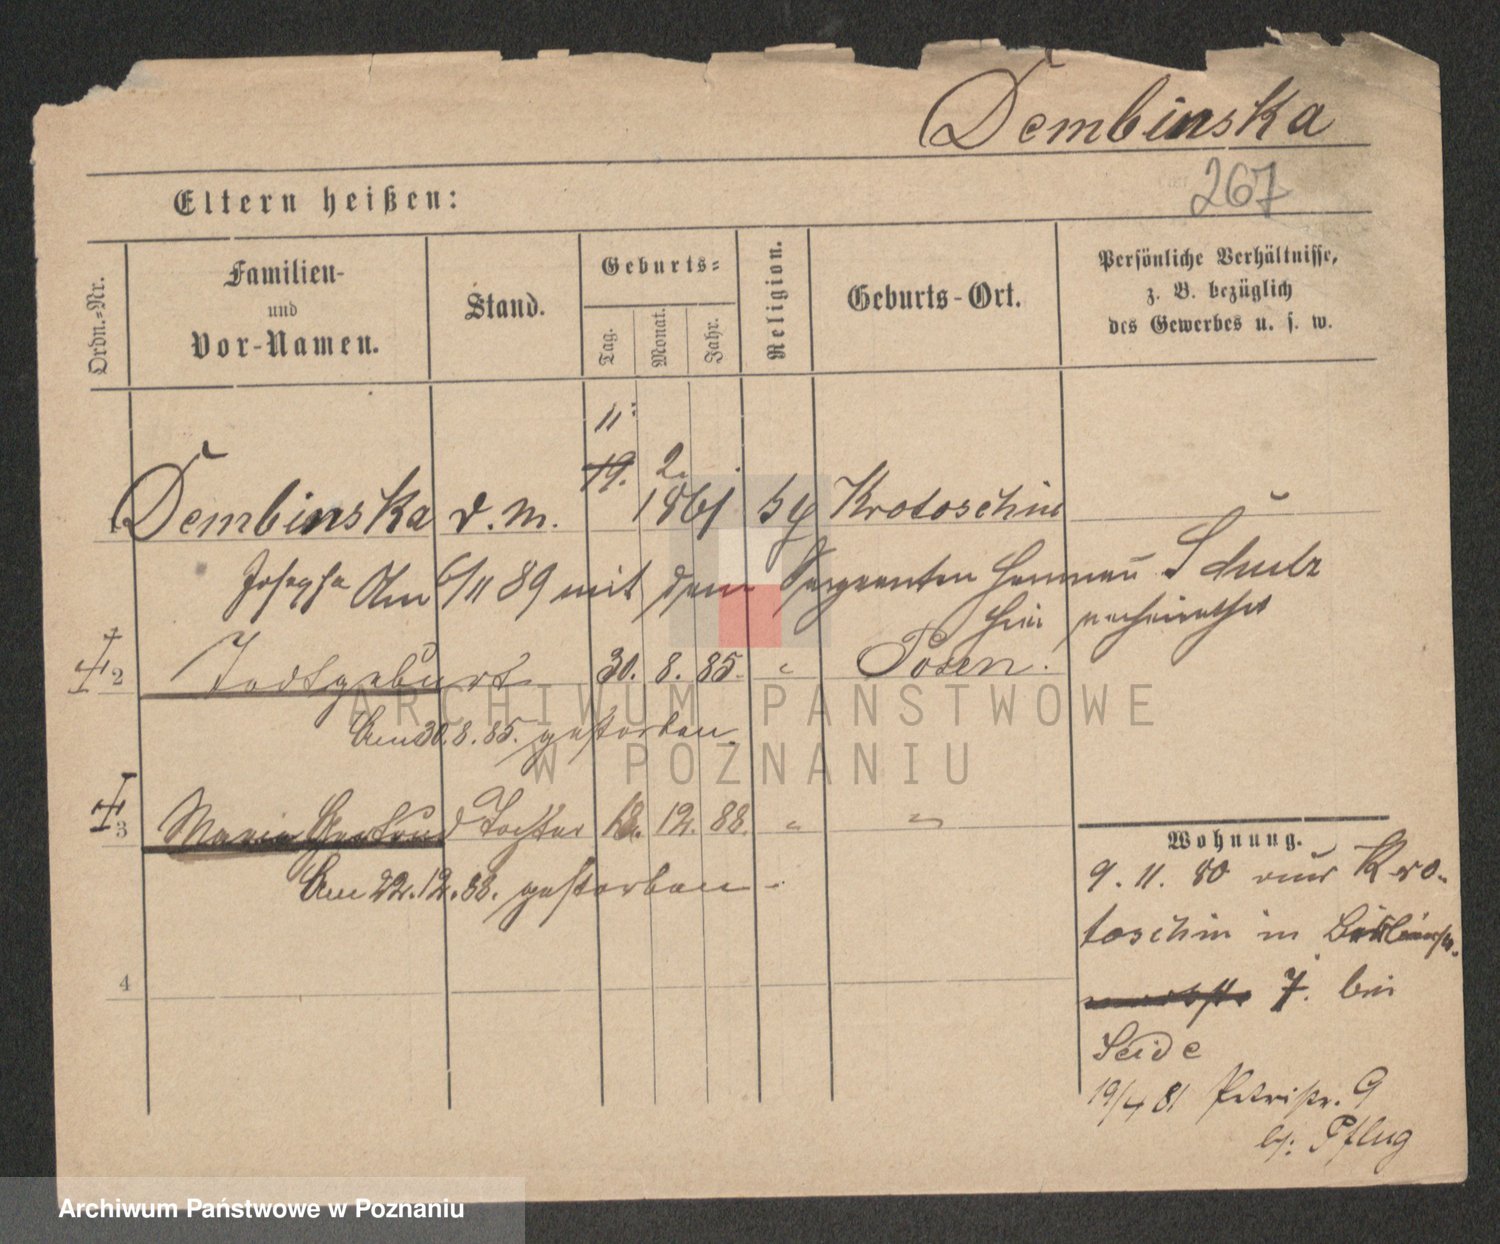 Dembinska
267
Eltern heißen:
Ordn.-Nr.
Familien- und Vor-Namen.
Stand.
Geburts-
Tag.
Monat.
Jahr.
Religion.
Geburts-Ort.
Persönliche Verhältnisse,
z. B. bezüglich
des Gewerbes u. s. w.
11
19. 2.
1 Dembinska d. M. 1861 Krotoschin
Josepha Am 6/11 89 mit dem Sergeanten Herman Schulz
hier verheirathet
2 Todtgeburt 30. 8. 85. " Posen.
Am 30.8.85. gestorben.
3 Maria Gertrud Tochter 18. 12. 88. " "
Am 22.12.88. gestorben.
4
Wohnung.
9. 11. 80 aus Kro-
toschin in
7. bei
Seide
19/4 81 Petristr. 9
bei Pflug
ARCHIWUM PAŃSTWOWE
W POZNANIU
Archiwum Państwowe w Poznaniu